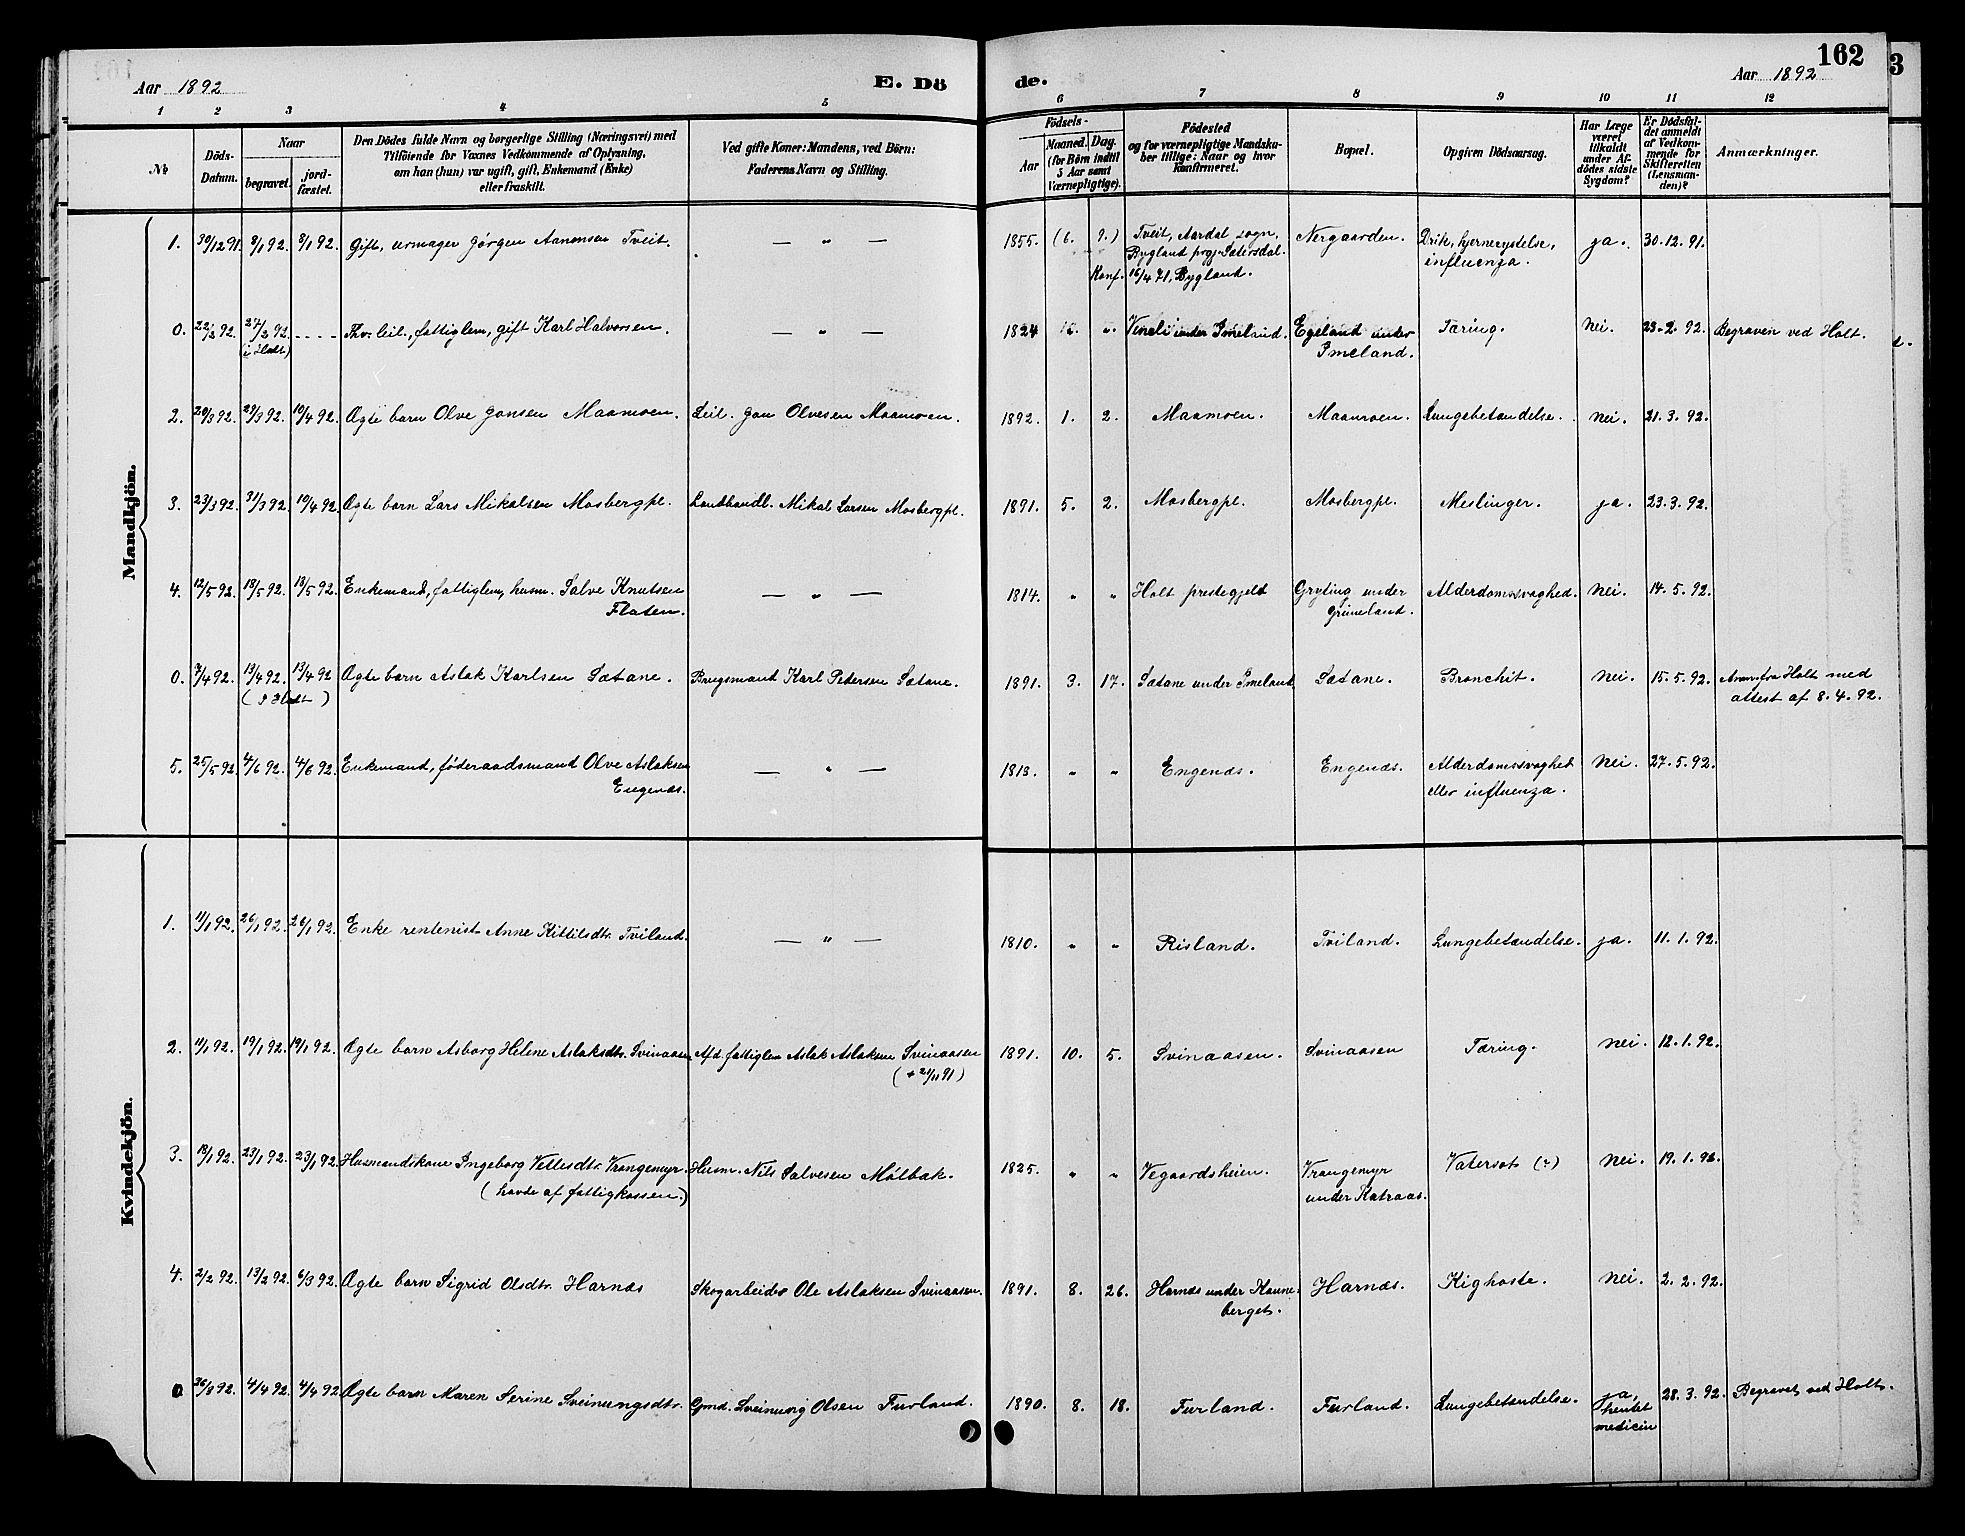 162
3
Aar 1892
E. Dö
de.
Aar 1892
1 2 3 4 5 6 7 8 9 10 11 12
№
Döds-
Datum.
Naar
begravet.
jord-
fæstet.
Den Dödes fulde Navn og borgerlige Stilling (Næringsvei) med
Tilföiende for Voxnes Vedkommende af Oplysning,
om han (hun) var ugift, gift, Enkemand (Enke)
eller fraskilt.
Ved gifte Koner: Mandens, ved Börn:
Faderens Navn og Stilling.
Födsels-
Aar
Maaned.
Dag.
(for Börn indtil
5 Aar samt
Værnepligtige).
Födested
og for værnepligtige Mandska-
ber tillige: Naar og hvor
konfirmeret.
Bopæl.
Opgiven Dödsaarsag.
Har Læge
været
tilkaldt
under Af-
dödes sidste
Sygdom?
Er Dödsfal-
det anmeldt
af Vedkom-
mende for
Skifteretten
(Lensman-
den)?
Anmærkninger.
Mandkjön.
1. 30/12 91. 8/1 92. 8/1 92. Gift, urmager Jørgen Aanensen Tveit. — " — 1855. (6. 9.) Tveit, Aardal sogn, Nergaarden. Drik, hjernerystelse, ja. 30.12.91.
Bygland prgj. Sætersdal. influenza.
Konf. 16/4 71, Bygland.
0. 22/2 92. 27/2 92. - - - - Fhv. leil., fattiglem, gift Karl Halvorsen. — " — 1824 Vineli under Imeland. Egeland under Tæring. Nei. 23.2.92. Begraven ved Holt.
(i Holt) Imeland.
2. 20/3 92. 29/3 92. 10/4 92. Ægte barn Olve Jonsen Maamoen. Leil. Jon Olvesen Maamoen. 1892. 1. 2. Maamoen. Maamoen. Lungebetændelse. Nei. 21.3.92.
3. 23/3 92. 31/3 92. 10/4 92. Ægte barn Lars Mikalsen Mosbergpl. Landhandl. Mikal Larsen Mosbergpl. 1891. 5. 2. Mosbergpl. Mosbergpl. Meslinger. ja. 23.3.92.
4. 12/5 92. 18/5 92. 18/5 92. Enkemand, fattiglem, husm. Salve Knutsen — " — 1814. " " Holt prestegjeld Gryting under Alderdomssvaghed. Nei. 14.5.92.
Flaten. Grimeland.
0. 7/4 92. 13/4 92. 13/4 92 Ægte barn Aslak Karlsen Sætane. Brugsmand Karl Petersen Sætane. 1891. 3. 17. Sætane under Imeland Sætane. Bronchit. Nei. 15.5.92. Anm. fra Holt med
(I Holt) attest af 8.4.92.
5. 25/5 92. 4/6 92. 4/6 92. Enkemand, føderaadsmand Olve Aslaksen — " — 1813. " " Engenæs. Engenæs. Alderdomssvaghed Nei. 27.5.92.
Engenæs. eller influenza.
Kvindekjön.
1. 11/1 92. 26/1 92. 26/1 92. Enke rentenist Anne Kittilsdtr. Tviland. — " — 1810. " " Risland. Tviland. Lungebetændelse. ja. 11.1.92.
2. 11/1 92. 19/1 92. 19/1 92. Ægte barn Asborg Helene Aslaksdtr. Svinaasen. Afd. fattiglem Aslak Aslaksen Svinaasen 1891. 10. 5. Svinaasen. Svinaasen Tæring. Nei. 12.1.92.
(+ 21/11 91)
3. 18/1 92. 23/1 92. 23/1 92. Husmandskone Ingeborg Vetlesdtr. Vrangemyr. Husm. Nils Salvesen Mølbak. 1825. " " Vegaardsheien. Vrangemyr Vatersot (?) Nei. 19.1.92.
(havde af fattigkassen.) under Katraas.
4. 2/2 92. 13/2 92. 6/3 92. Ægte barn Sigrid Olsdtr. Harnæs Skogarbeider Ole Aslaksen Svinaasen. 1891. 8. 26. Harnæs under Kaune- Harnæs. Kighoste. Nei. 2.2.92.
berget.
0 26/3 92. 4/4 92. 4/4 92. Ægte barn Maren Serine Sveinungsdtr. Gmd. Sveinung Olsen Furland. 1890. 8. 18. Furland. Furland. Lungebetændelse. ja, 28.3.92. Begravet ved Holt.
hentet
medicin